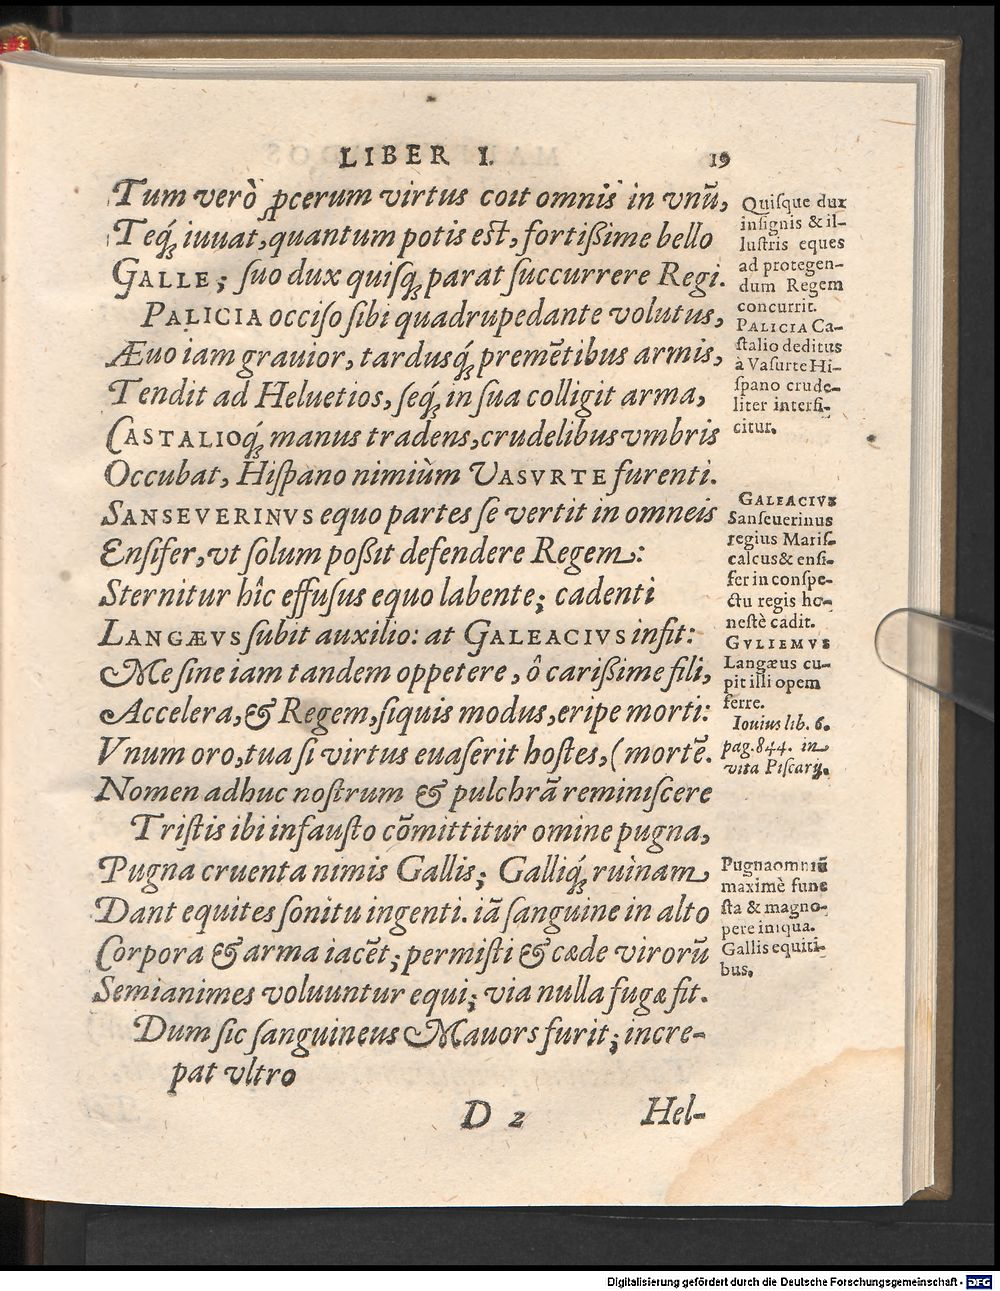 LIBER I. 19
Tum verò ꝓcerum virtus coit omnis in vnũ,
Teq́; iuuat, quantum potis est, fortißime bello
GALLE; suo dux quisq; parat succurrere Regi.
PALICIA occiso sibi quadrupedante volutus,
Æuo iam grauior, tardusq́; premẽtibus armis,
Tendit ad Heluetios, seq́; in sua colligit arma,
CASTALIOq́; manus tradens, crudelibus vmbris
Occubat, Hispano nimiùm VASVRTE furenti.
SANSEVERINVS equo partes se vertit in omneis
Ensifer, vt solum poßit defendere Regem:
Sternitur hîc effusus equo labente; cadenti
LANGÆVS subit auxilio: at GALEACIVS infit:
Me sine iam tandem oppetere, ô carißime fili,
Accelera, & Regem, siquis modus, eripe morti:
Vnum oro, tua si virtus euaserit hostes, (mortẽ.
Nomen adhuc nostrum & pulchrã reminiscere
Tristis ibi infausto cõmittitur omine pugna,
Pugna cruenta nimis Gallis; Galliq́; ruinam
Dant equites sonitu ingenti. iã sanguine in alto
Corpora & arma iacẽt; permisti & cæde virorũ
Semianimes voluuntur equi; via nulla fugæ fit.
Dum sic sanguineus Mauors furit; incre-
pat vltro
D 2 Hel-
Quisque dux
insignis & il-
lustris eques
ad protegen-
dum Regem
concurrit.
PALICIA Ca-
stalio deditus
à Vasurte Hi-
spano crude-
liter interfi-
citur.
GALEACIVS
Sanseuerinus
regius Maris-
calcus & ensi-
fer in conspe-
ctu regis ho-
nestè cadit.
GVLIEMVS
Langæus cu-
pit illi opem
ferre.
Iouius lib. 6.
pag. 844. in
vita Piscarij.
Pugna omniũ
maximè fune
sta & magno-
pere iniqua.
Gallis equiti-
bus.
Digitalisierung gefördert durch die Deutsche Forschungsgemeinschaft - DFG